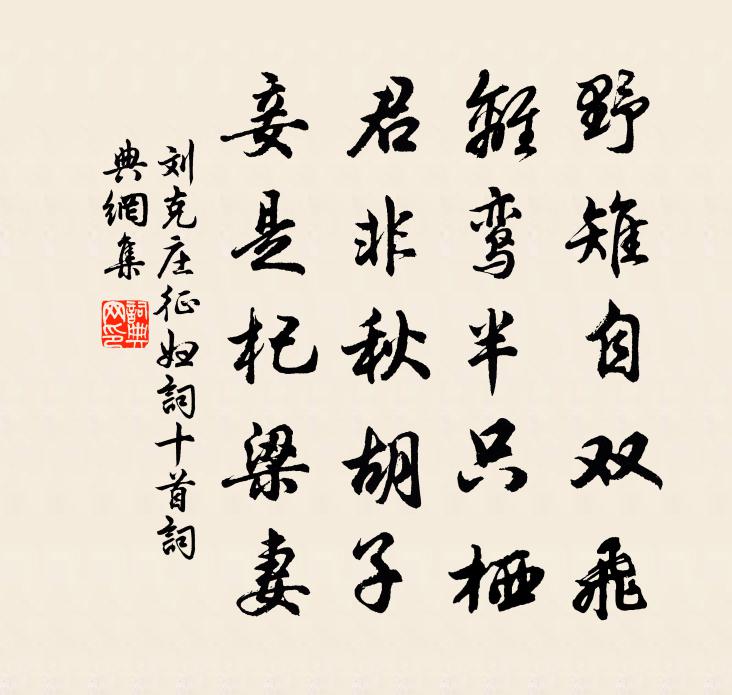 野雉自双飛
離鸾半只栖
君非秋胡子
妾是杞梁妻
刘克庄征妇詞十首詞
典網集
詞典网印